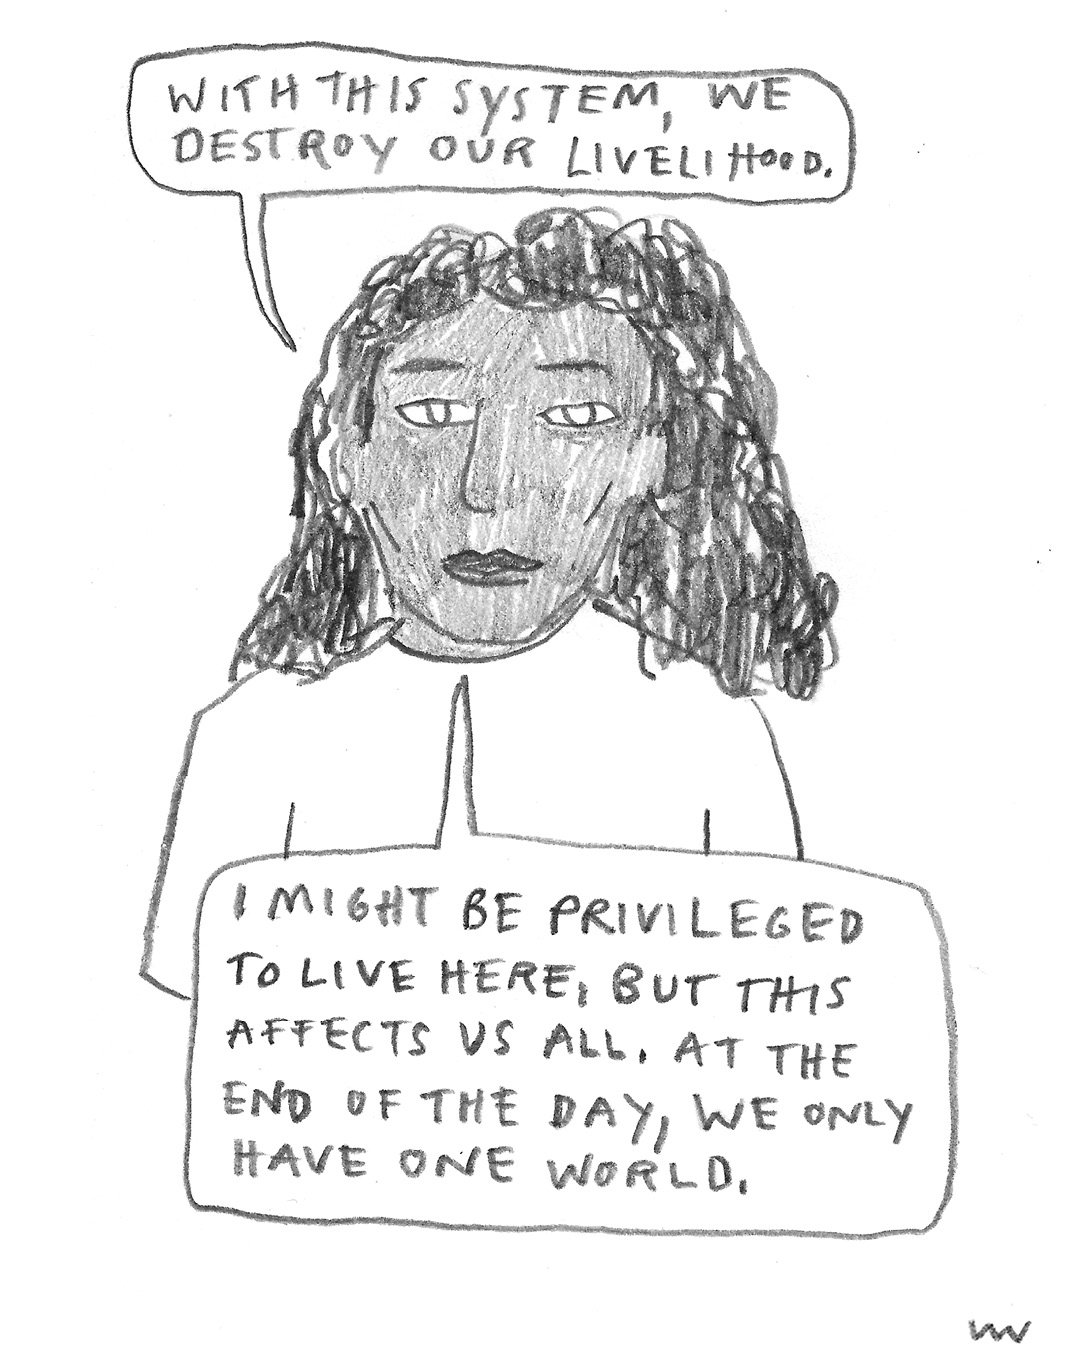 WITH THIS SYSTEM, WE
DESTROY OUR LIVELIHOOD.
I MIGHT BE PRIVILEGED
TO LIVE HERE, BUT THIS
AFFECTS US ALL. AT THE
END OF THE DAY, WE ONLY
HAVE ONE WORLD.